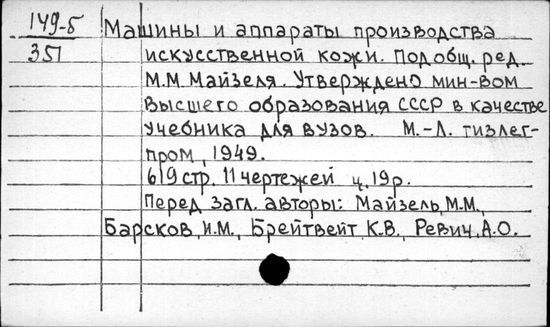 149-5 Машины и аппараты производства
351 искусственной кожи. Под общ. ред.
М.М. Майзеля. Утверждено мин-вом
высшего образования СССР в качестве
учебника для вузов. М.-Л. гизлег-
пром, 1949.
619 стр. 11 чертежей ц. 19 р.
Перед загл. авторы: Майзель, М.М.,
Барсков, И.М., Брейтвейт, К.В., Ревич, А.О.